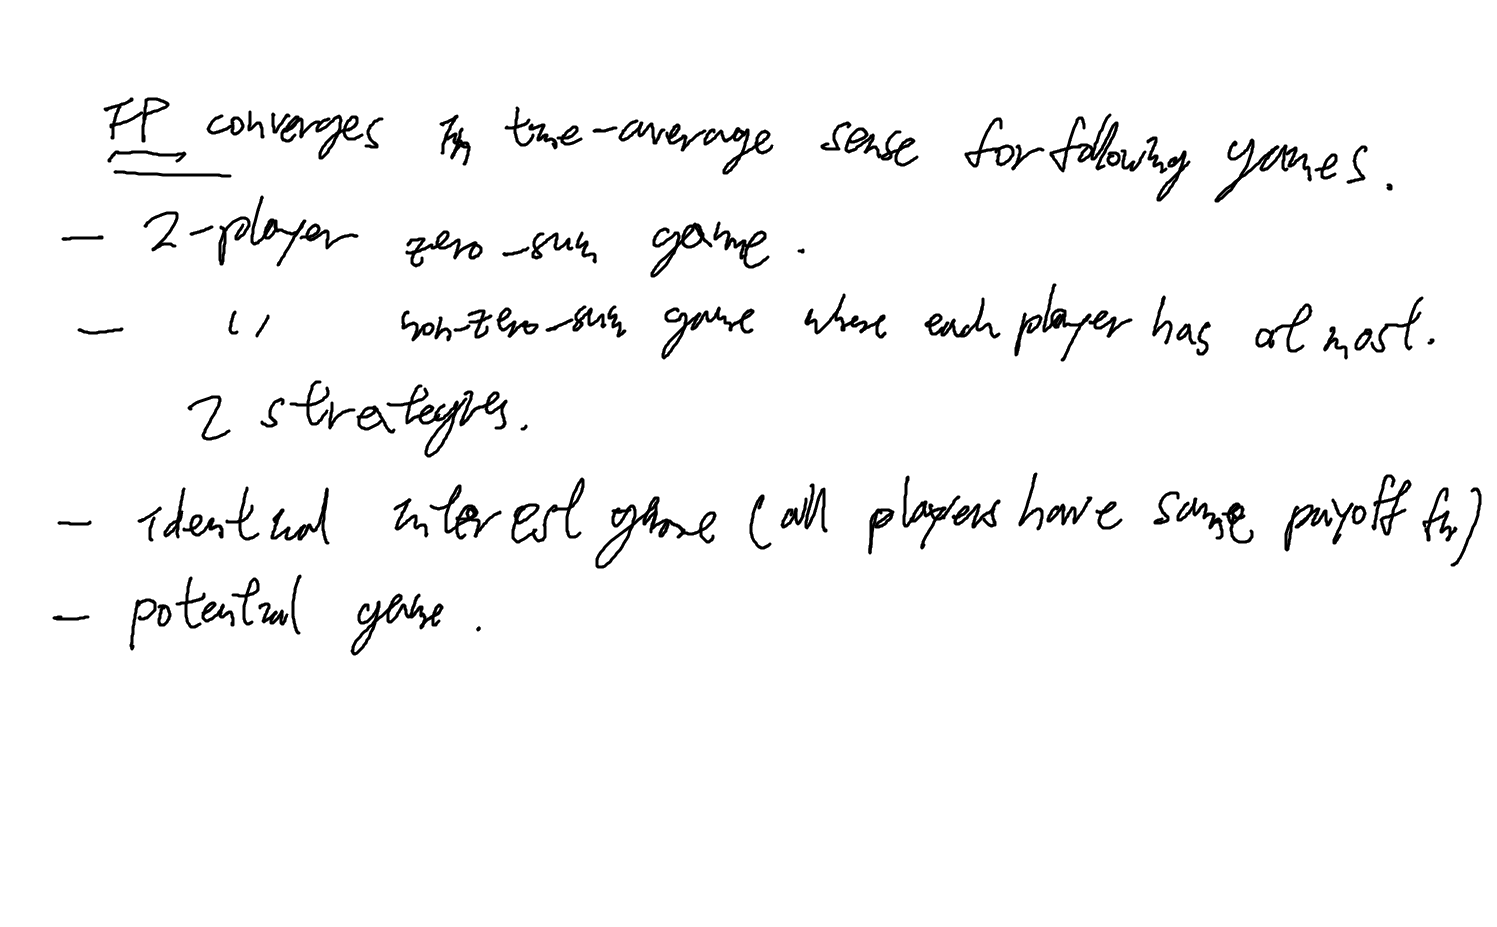 FP converges in time-average sense for following games.
- 2-player zero-sum game.
- " non-zero-sum game where each player has at most.
2 strategies.
- identical interest game (all players have same payoff fn)
- potential game.